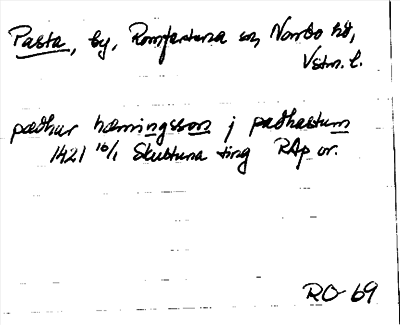 Pasta, by, Romfartuna sn, Norrbo hd,
Vstm. l.
pædhur hæmingsson j padhastum
1421 16/1 Skultuna ting RAp or.
RO 69